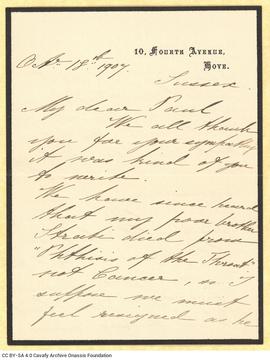 10, Fourth Avenue,
Hove.
18th 1907.
Sussex.
My dear Paul
We all thank
you for your sympathy
it was kind of you
to write.
We have since heard
that my poor brother
Strati died from
"Phthisis of the Throat"
not Cancer, so I
suppose we must
feel resigned as he
CC BY-SA 4.0 Cavafy Archive Onassis Foundation